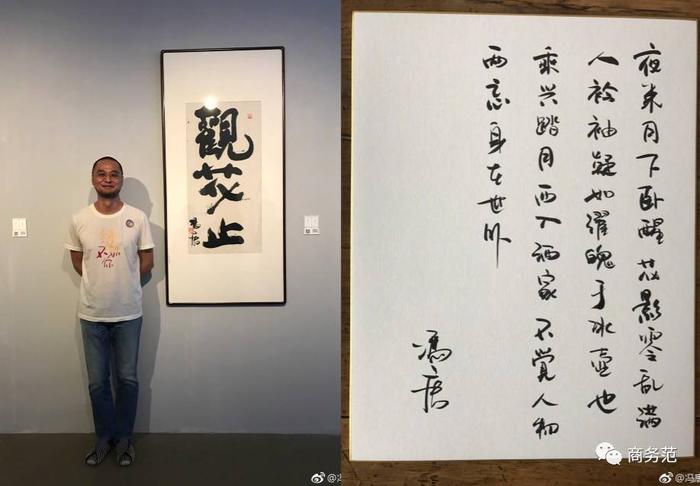 觀花止
冯唐
夜来月下卧醒花影零乱满
人衿袖疑如濯魄于冰壶也
乘兴踏月西入酒家不觉人物
两忘身在世外
冯唐
商务范
@冯
@冯